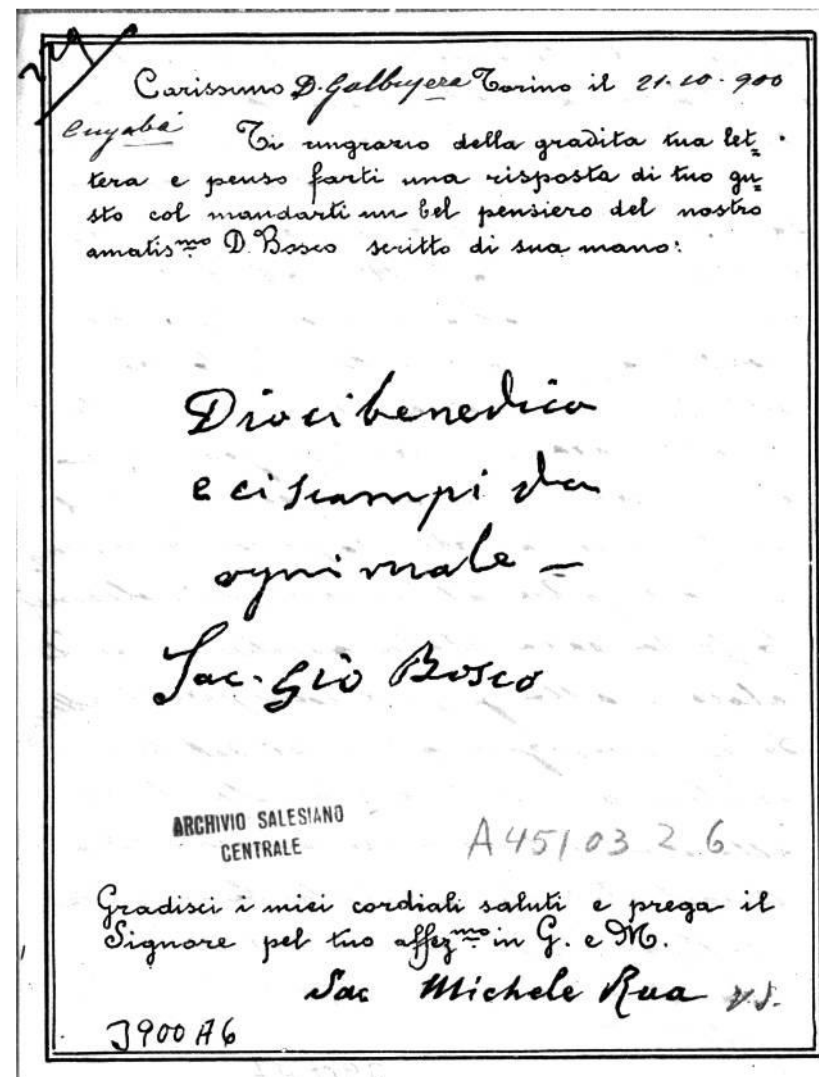 Carissimo D. Galbusera Torino il 21.10.900
Cuyabá Ti ringrazio della gradita tua let=
tera e penso farti una risposta di tuo gu=
sto col mandarti un bel pensiero del nostro
amatis.mo D. Bosco scritto di sua mano:
Dio ci benedica
e ci scampi da
ogni male –
Sac. Gio Bosco
ARCHIVIO SALESIANO
CENTRALE
A4510326
Gradisci i miei cordiali saluti e prega il
Signore pel tuo affez.mo in G. e M.
Sac Michele Rua
3900A6